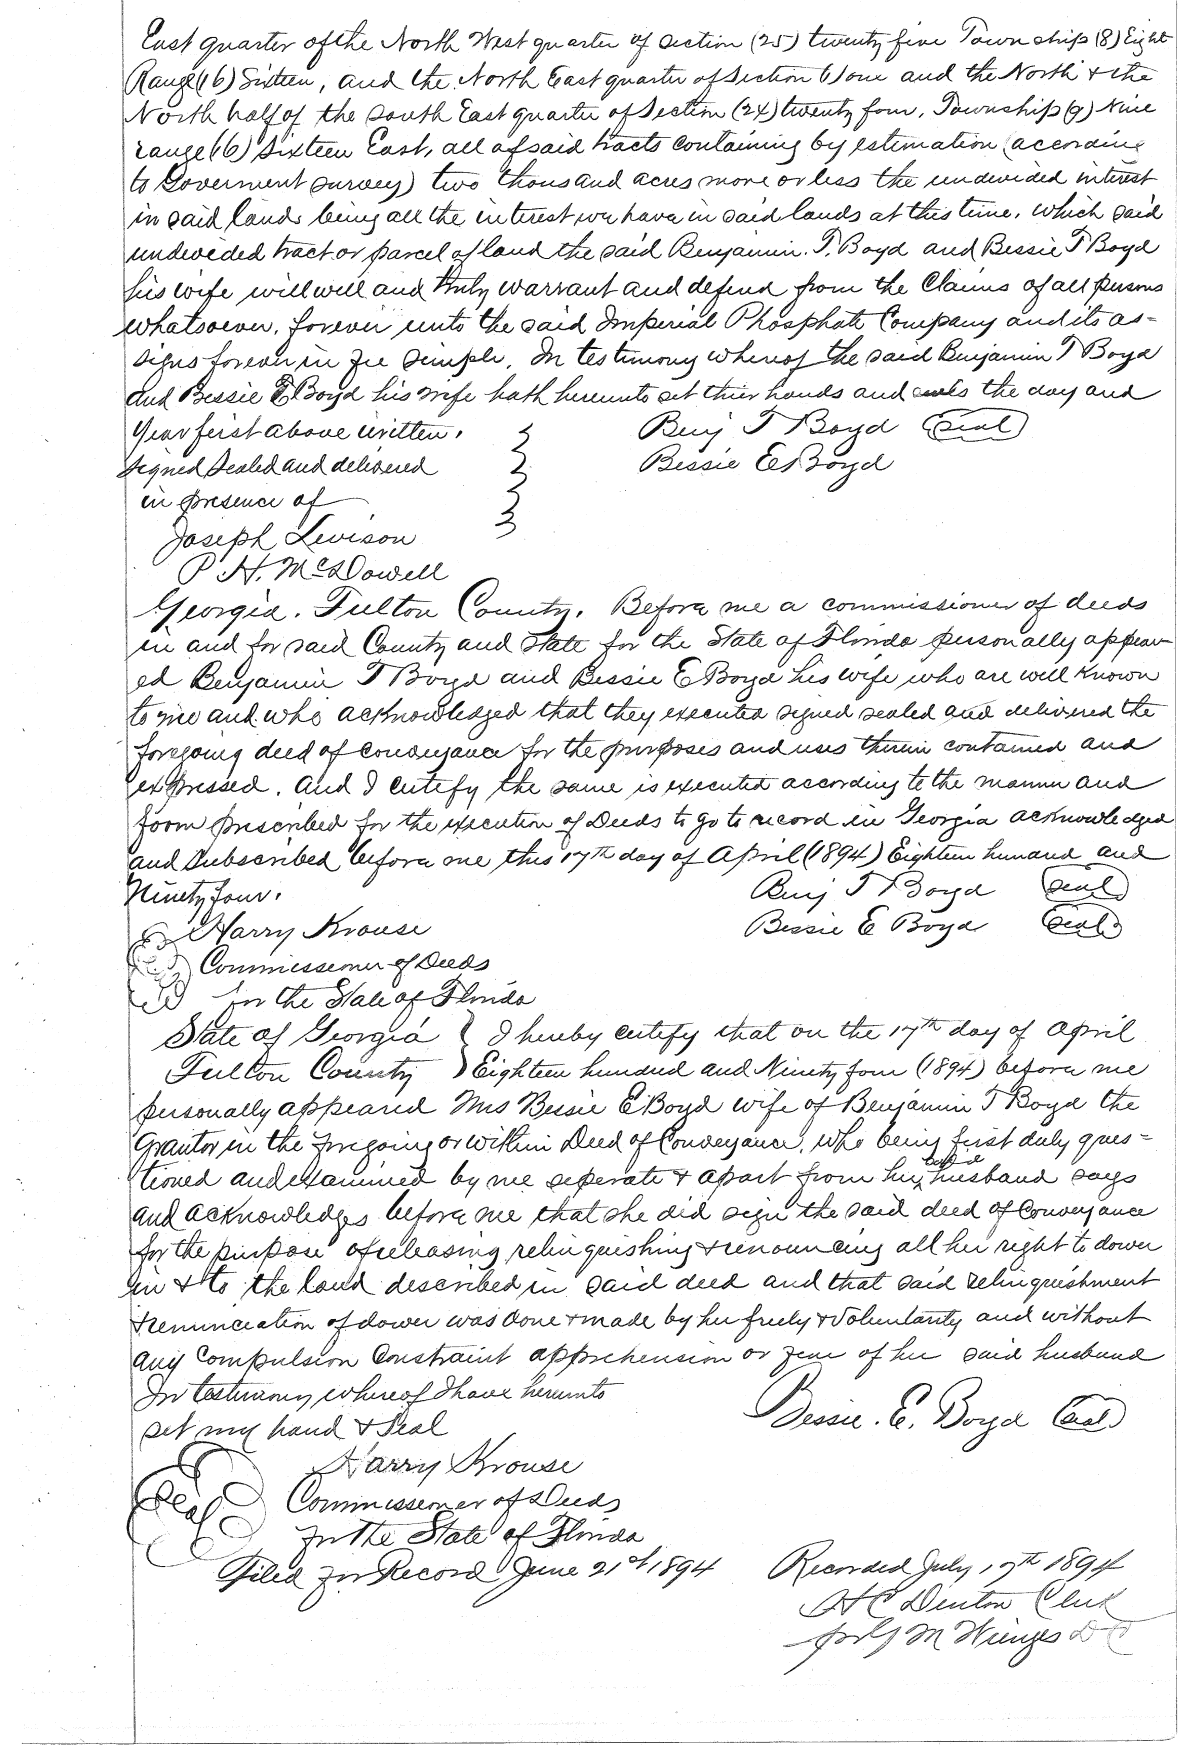 East quarter of the North West quarter of section (25) twenty five Township (8) Eight
Range (16) Sixteen, and the North East quarter of Section (1) one and the North & the
North half of the south East quarter of Section (24) twenty four, Township (9) Nine
range (16) Sixteen East, all of said tracts containing by estimation (according
to Goverment survey) two thousand acres more or less the undivided interest
in said lands being all the interest we have in said lands at this time, which said
undivided tract or parcel of land the said Benjamin. T. Boyd and Bessie T Boyd
his wife will will and truly warrant and defend from the Claims of all persons
whatsoever, forever unto the said Imperial Phosphate Company and its as=
signs forever in fee simple. In testimony whereof the said Benjamin T Boyd
and Bessie E Boyd his wife hath hereunto set thier hands and seals the day and
Year first above written.
Benj T Boyd (seal)
signed sealed and delivered
Bessie E Boyd
in presence of
Joseph Levison
P. H. McDowell
Georgia. Fulton County. Before me a commissioner of deeds
in and for said County and State for the State of Florida personally appear
ed Benjamin T Boyd and Bessie E Boyd his wife who are well known
to me and who acknowledged that they executed signed sealed and delivered the
foregoing deed of conveyance for the purposes and uses therein contained and
expressed. and I certify the same is executed according to the manner and
form prescribed for the execution of Deeds to go to record in Georgia acknowledged
and Subscribed before me this 17th day of April (1894) Eighteen hundred and
Ninety four.
Benj T Boyd (seal)
Harry Krouse
Bessie E Boyd (seal)
Commissioner of Deeds
for the State of Florida
State of Georgia } I hereby certify that on the 17th day of April
Fulton County } Eighteen hundred and Ninety four (1894) before me
personally appeared Mrs Bessie E Boyd wife of Benjamin T Boyd the
Grantor in the foregoing or within Deed of Conveyance, who being first duly ques=
tioned and examined by me seperate & apart from her said husband says
and acknowledges before me that she did sign the said deed of Conveyance
for the purpose of releasing, relinquishing & renouncing all her right to dower
in & to the land described in said deed and that said relinquishment
& renunciation of dower was done & made by her freely & voluntarily and without
any Compulsion Constraint apprehension or fear of her said husband
In testimony whereof I have hereunto
set my hand & Seal
Bessie. E. Boyd (seal)
Harry Krouse
Seal
Commissioner of Deeds
for the State of Florida
Filed for Record June 21st 1894
Recorded July 17th 1894
H C Denton Clerk
M Wienges D C